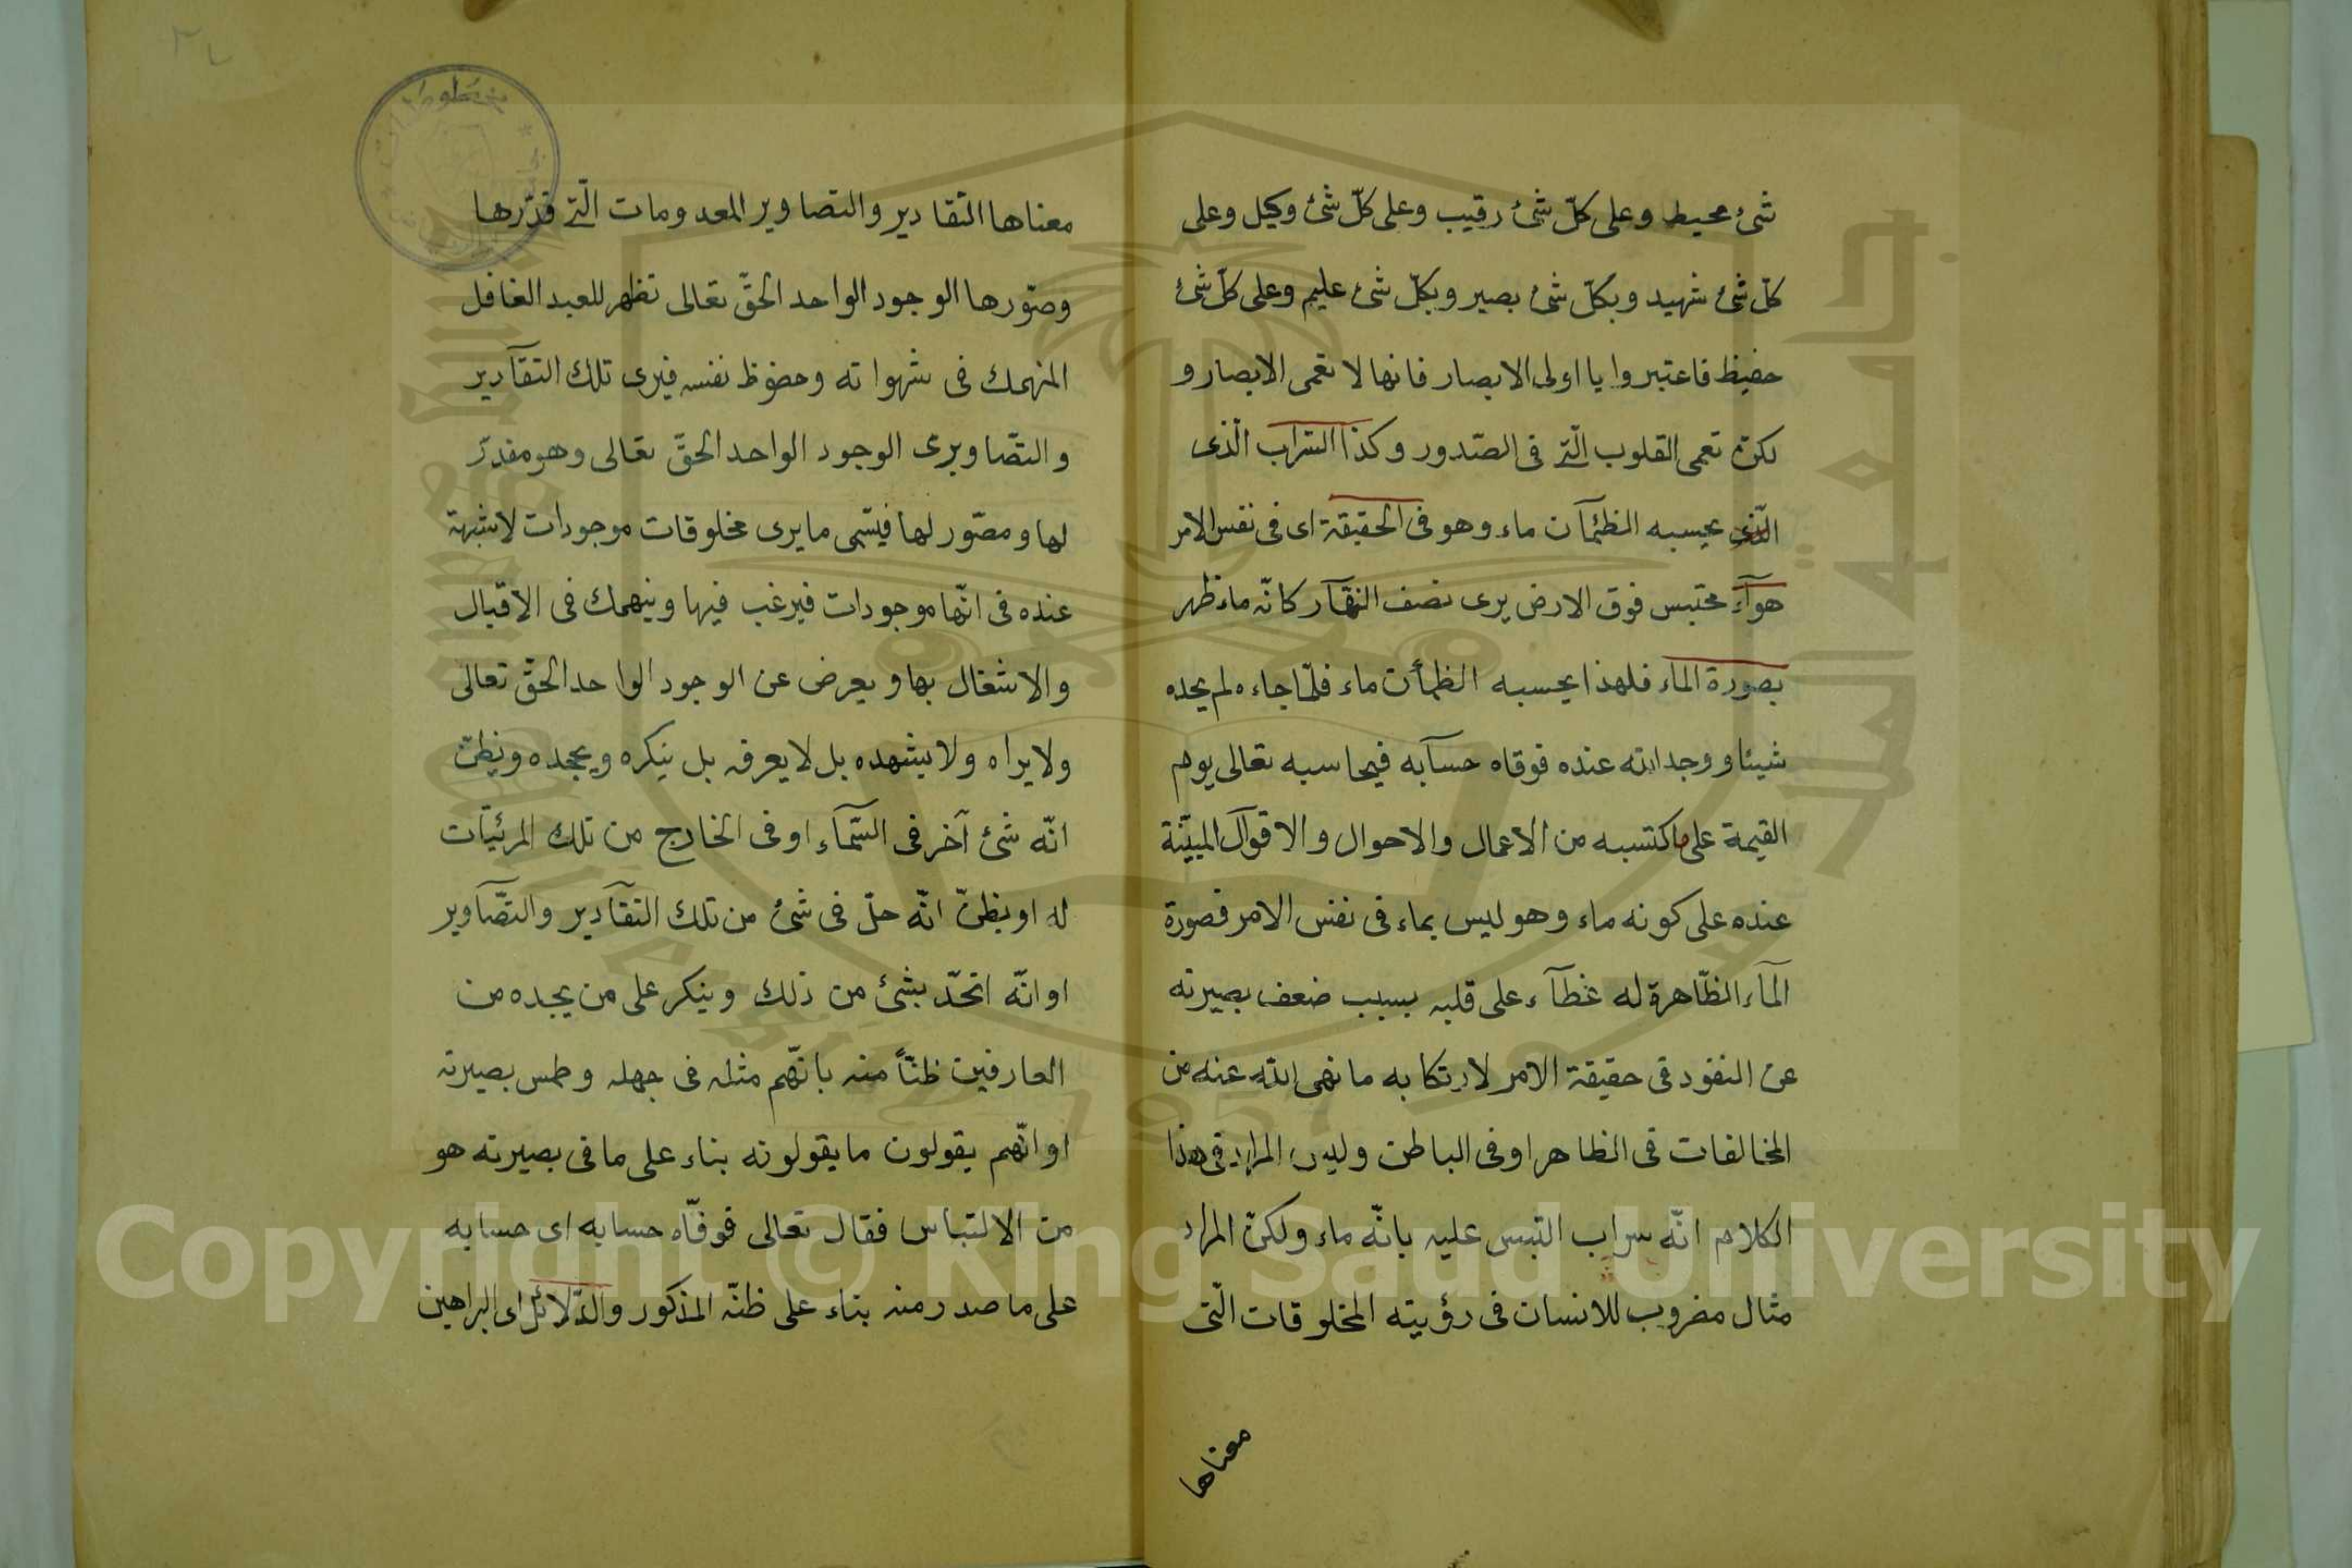 شئ محيط وعلى كلّ شئ رقيب وعلى كلّ شئ وكيل وعلى
كلّ شئ شهيد وبكلّ شئ بصير وبكلّ شئ عليم وعلى كلّ شئ
حفيظ فاعتبروا يا اولى الابصار فانها لا تعمى الابصار و
لكن تعمى القلوب الّتى فى الصّدور وكذا السّراب الّذى
الّذى يحسبه الظمآن ماء وهو فى الحقيقة اى فى نفس الامر
هوآء محتبس فوق الارض يرى نصف النهّار كانّه ماء ظهر
بصورة الماء فلهذا يحسبه الظمأن ماء فلمّا جاءه لم يجده
شيئا ووجد الله عنده فوقاه حسابه فيحاسبه تعالى يوم
القيمة على ما كتسبه من الاعمال والاحوال والاقوال المبيّنة
عنده على كونه ماء وهو ليس بماء فى نفس الامر فصورة
المآء الظّاهرة له غطآء على قلبه بسبب ضعف بصيرته
عن النفود فى حقيقة الامر لارتكابه ما نهى الله عنه من
المخالفات فى الظاهر او فى الباطن وليس المراد فى هذا
الكلام انّه سراب التبس عليه بانّه ماء ولكن المراد
مثال مضروب للانسان فى رؤيته المخلوقات الّتى
معناها
معناها التقادير والتصاوير المعدومات الّتى قدّرها
وصوّرها الوجود الواحد الحقّ تعالى تظهر للعبد الغافل
المنهمك فى شهواته وحضوظ نفسه فيرى تلك التقآدير
والتصّاوير الوجود الواحد الحقّ تعالى وهو مقدّر
لها ومصوّر لها فيسّمى ما يرى مخلوقات موجودات لا شبهة
عنده فى انّها موجودات فيرغب فيها وينهمك فى الاقبال
والاشتغال بها ويعرض عن الوجود الواحد الحقّ تعالى
ولا يراه ولا يشهده بل لا يعرفه بل ينكره ويجحده ويظن
انّه شئ آخر فى السّمآء او فى الخارج من تلك المرئيّات
له او يظنّ انّه حلّ فى شئ من تلك التقآدير والتصّآوير
او انّه اتحّد بشئ من ذلك وينكر على من يجده من
العارفين ظنّاً منه بانّهم مثله فى جهله وطمس بصيرته
او انّهم يقولون ما يقولونه بناء على ما فى بصيرته هو
من الالتباس فقال تعالى فوفّاه حسابه اى حسابه
على ما صدر منه بناء على ظنّه المذكور والدّلائل اى البراهين
مخطوطات
Copyright © King Saud University
1957